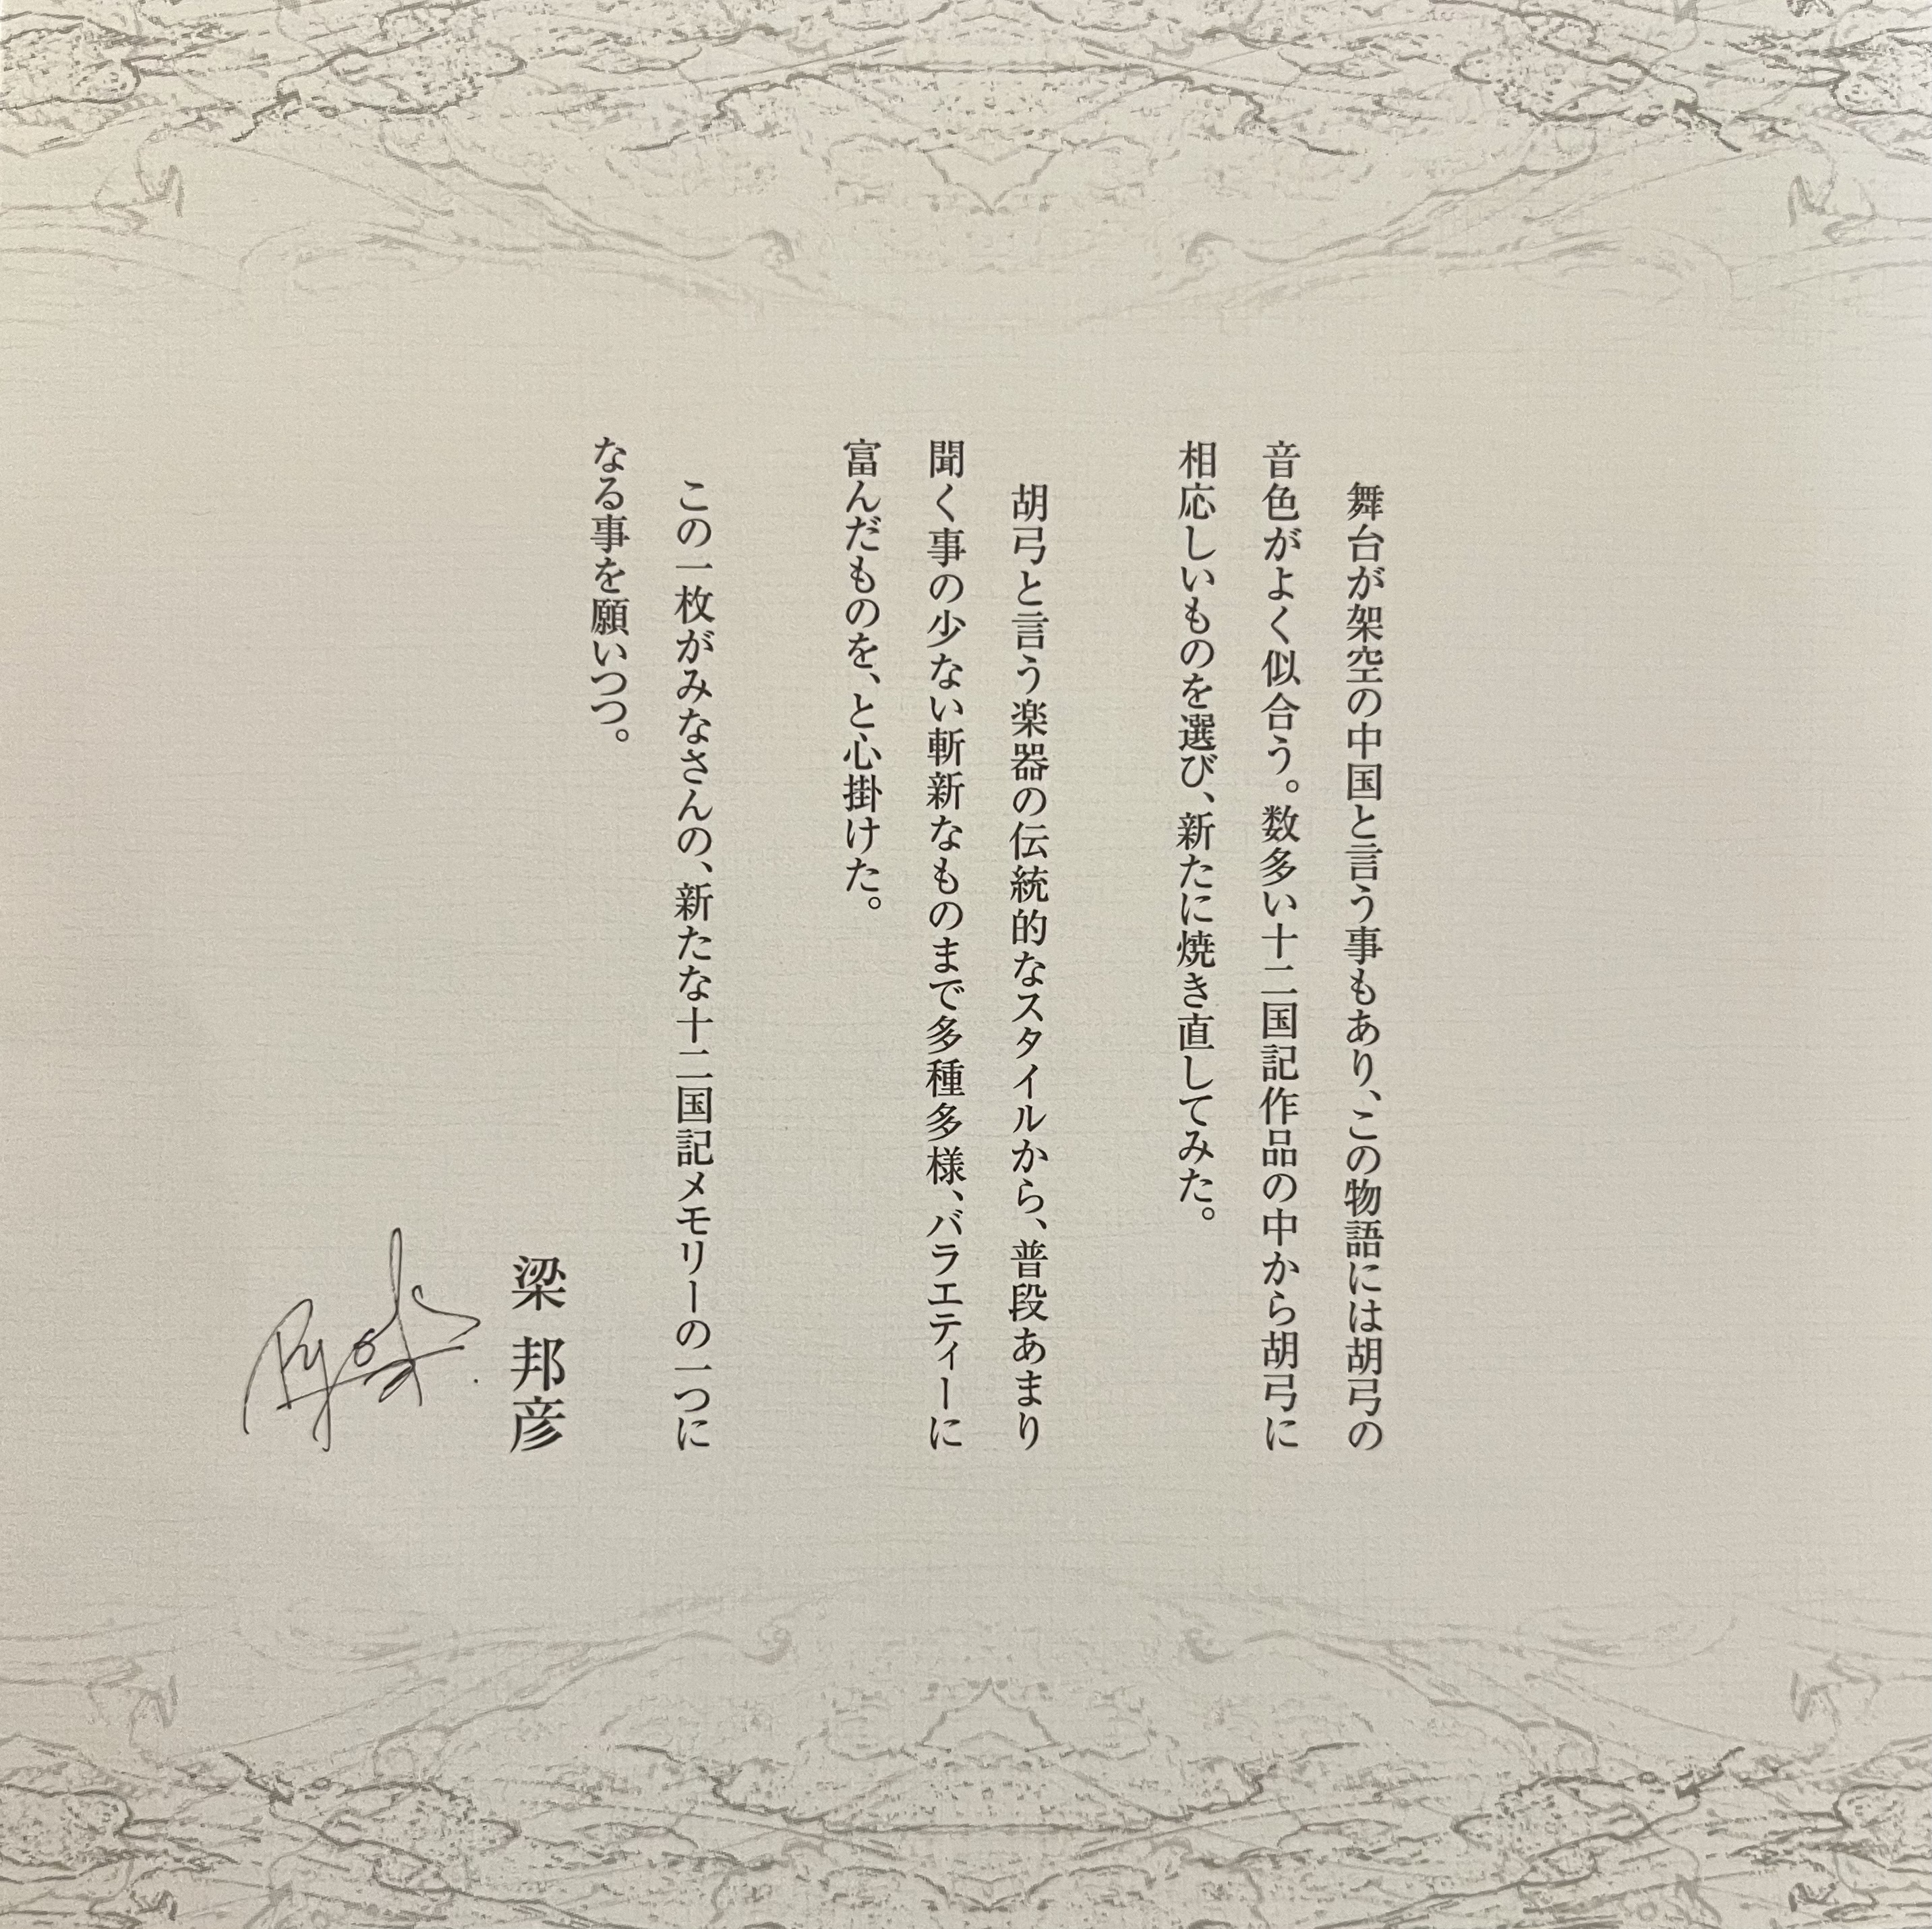 舞台が架空の中国と言う事もあり、この物語には胡弓の
音色がよく似合う。数多い十二国記作品の中から胡弓に
相応しいものを選び、新たに焼き直してみた。
胡弓と言う楽器の伝統的なスタイルから、普段あまり
聞く事の少ない斬新なものまで多種多様、バラエティーに
富んだものを、と心掛けた。
この一枚がみなさんの、新たな十二国記メモリーの一つに
なる事を願いつつ。
梁 邦彦